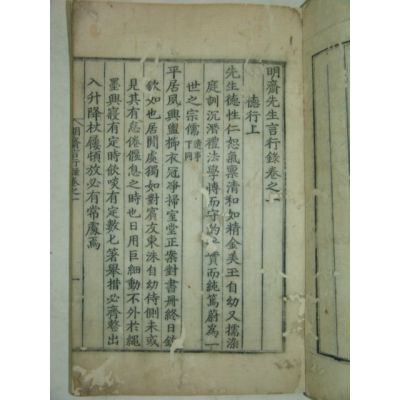 明齋先生言行錄卷之一
德行上
先生德性仁恕氣禀清和如精金美玉自幼又擩染
庭訓沉潛禮法學博而守約質而純篤蔚爲一
世之宗儒遺事下同
平居夙興盥櫛衣冠淨掃室堂正案對書冊終日欽
欽如也居閒處獨如對賓友東洙自幼侍側未或
見其有怠倦偃息之時也日用巨細動不外於繩
墨興寢有定時飮啖有定數匕箸舉措必齊整出
入升降杖屨頓放必有常處焉
明齋言行錄卷之一
一